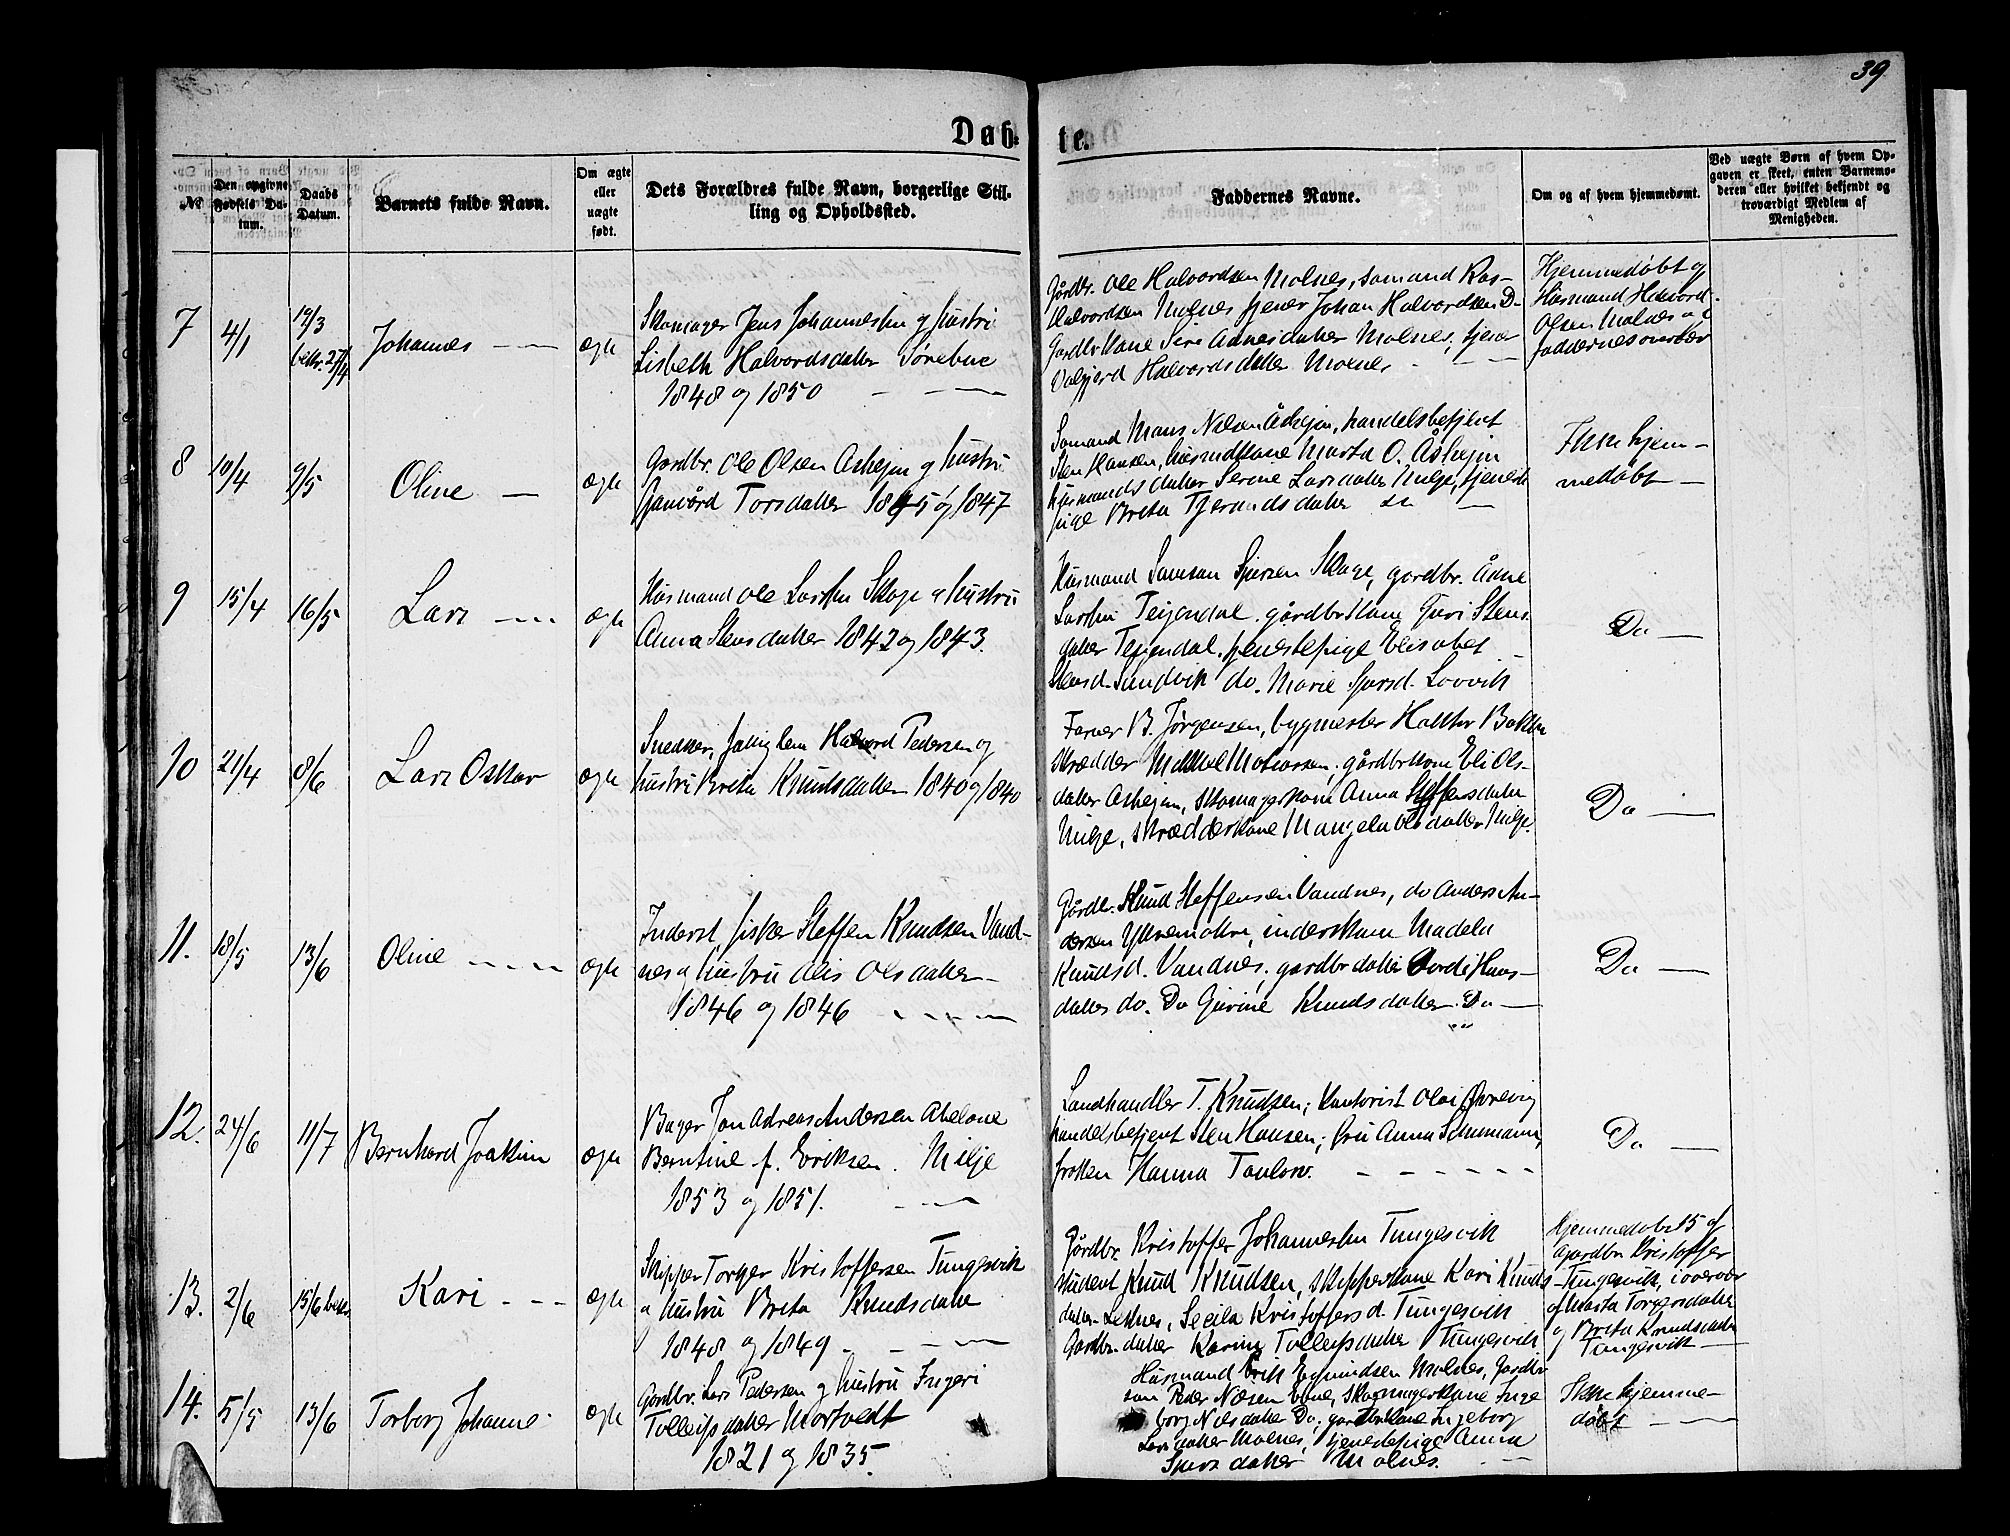 39
Døb-
te.
№
Den opgivne Fødsels Datum.
Daabs Datum.
Barnets fulde Navn.
Om ægte eller uægte født.
Dets Forældres fulde Navn, borgerlige Stilling og Opholdssted.
Faddernes Navne.
Om og af hvem hjemmedøbt.
Ved uægte Børn af hvem Opgaven er skeet, enten Barnemoderen eller hvilket bekjendt og troværdigt Medlem af Menigheden.
7
4/1
12/3
bekr. 27/4
Johannes — —
ægte
Skomager Jens Johannessen og hustru
Lisbeth Halvordsdatter Sørebue
1848 og 1850
Gårdbr. Ole Halvordsen Molnes, sømand
Halvordsen Molnes tjener Johan Halvordsen D-
Gardbr.kone Siri Adnesdatter Molnes, tjener
Halvordsdatter Molnes
Hjemmedøbt af
Husmand Halvord
Olsen Molnes
8
10/4
9/5
Oline —
ægte
Gardbr. Ole Olsen Ashejm og hustru
Torsdatter 1845 og 1847
Sømand Mons Nilsen Åshejm, handelsbetjent
Sten Hansen, husmdkone Marta O. Åshejm
husmandsdatter Serine Larsdatter Milje, tjeneste
pige Brita Tjerandsdatter do —
Ikke hjem-
medøbt —
9
15/4
16/5
Lars — — —
ægte
Husmand Ole Larsen Skoge og hustru
Anna Stensdatter 1842 og 1843.
Husmand Samson Sjursen Skoge, gardbr. Ådne
Larsen Teigendal. gårdbrkone Guri Stens-
datter Teigendal. tjenestepige Elisabet
Stensd. Sandvik do. Marie Sjursd. Lovvik
Do —
10
21/4
8/6
Lars Oskar
ægte
Snedker, Halvord Pedersen og
hustru Brita Knudsdatter 1840 og 1840
Farver B. Jørgensen, bygmester Halthor Bakken
skrædder Mikkel gårdbrkone Eli Ols-
datter Ashejm, skomagerkone Anna Steffensdatter
Milje, skrædderkone Olsdatter Milje.
Do —
11.
18/5
13/6
Oline — — —
ægte
Inderst, fisker Steffen Knudsen Vand-
nes og hustru Alis Olsdatter —
1846 og 1846
Gårdbr. Knud Steffensen Vandnes, do Anders An-
dersen inderstkone Madela
Knudsd. Vandnes, gardbr.datter Hans-
datter do. Do Gurine Knudsdatter Do —
Do —
12.
24/6
11/7
Bernhard Joakim
ægte
Bager Jon Adreas Andersen Abelone
Berntine f. Eriksen. Milje
1853 og 1851.
Landhandler T. Knudsen; kontorist Olai
handelsbetjent Sten Hansen; fru Anna Schumann,
frøken Hanna Taulow. — — —
Do —
13.
2/6
15/6 bekr.
Kari — — —
ægte
Skipper Torger Kristoffersen Tungesvik
og hustru Brita Knudsdatter
1848 og 1849 — —
Gårdbr. Kristoffer Johannessen Tungesvik
student Knud Knudsen, skipperkone Kari Knuds-
datter Leknes, Secila Kristoffersd. Tungesvik
Gardbr.datter Karina Tollefsdatter Tungesvik
Hjemmedøbt 15 af
gardbr. Kristoffer
Tungesvik, i overvær
af Marta Torgersdatter
og Brita Knudsdatter
Tungesvik —
14.
5/5
13/6
Torborg Johanne
ægte
Gardbr. Lars Pedersen og hustru Ingeri
Tollefsdatter Mortvedt
1821 og 1835.
Husmand Erik Molnes, Gardbr
søn Peder Ebne, Skomagerkone Inge
borg Nilsdatter Do; gardbrkone Ingeborg
Larsdatter Molnes, tjenestepige Anna
Sjursdatter Molnes. —
Ikke hjemme-
døbt —